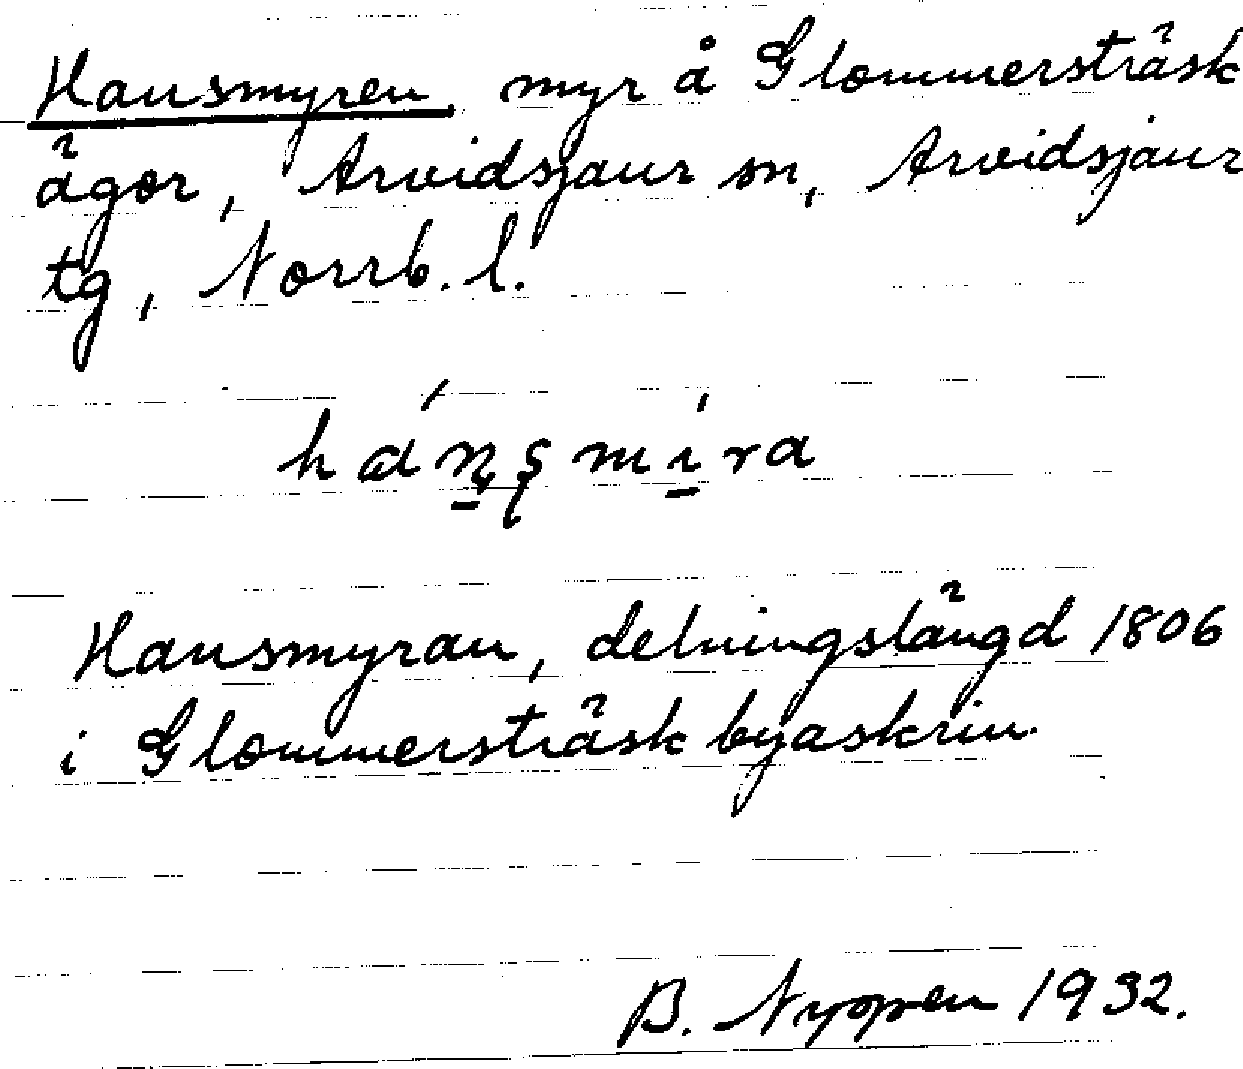 Hansmyren, myr å Glommersträsk
ägor, Arvidsjaur sn, Arvidsjaur
tg, Norrb. l.
Hansmyran, delningslängd 1806
i Glommersträsk byaskrin.
B. Nyppen 1932.